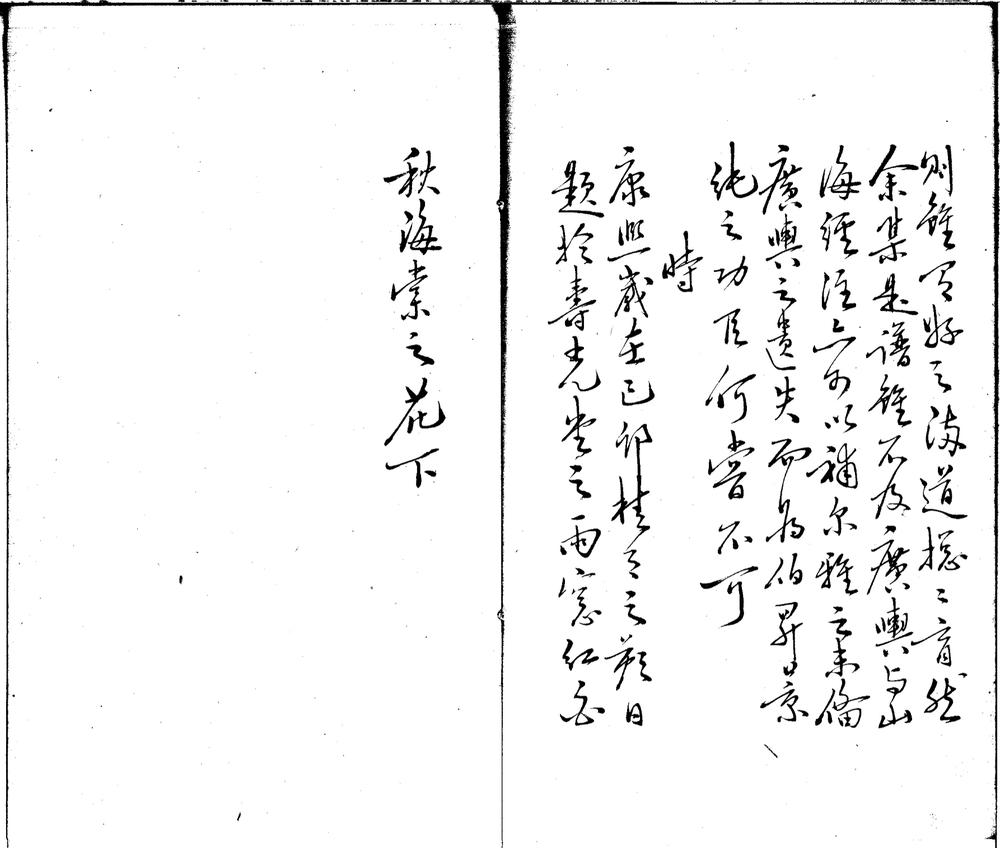 則雖胃好之满道揔〻育然
余集是譜雖不及廣輿与山
海經注亦可以補尔雅之未備
廣輿之遺失而為伯昇景
純之功臣何嘗不可
時
康熙歲在己卯桂月之朔日
題於壽光堂之雨窓紅白
秋海棠之花下